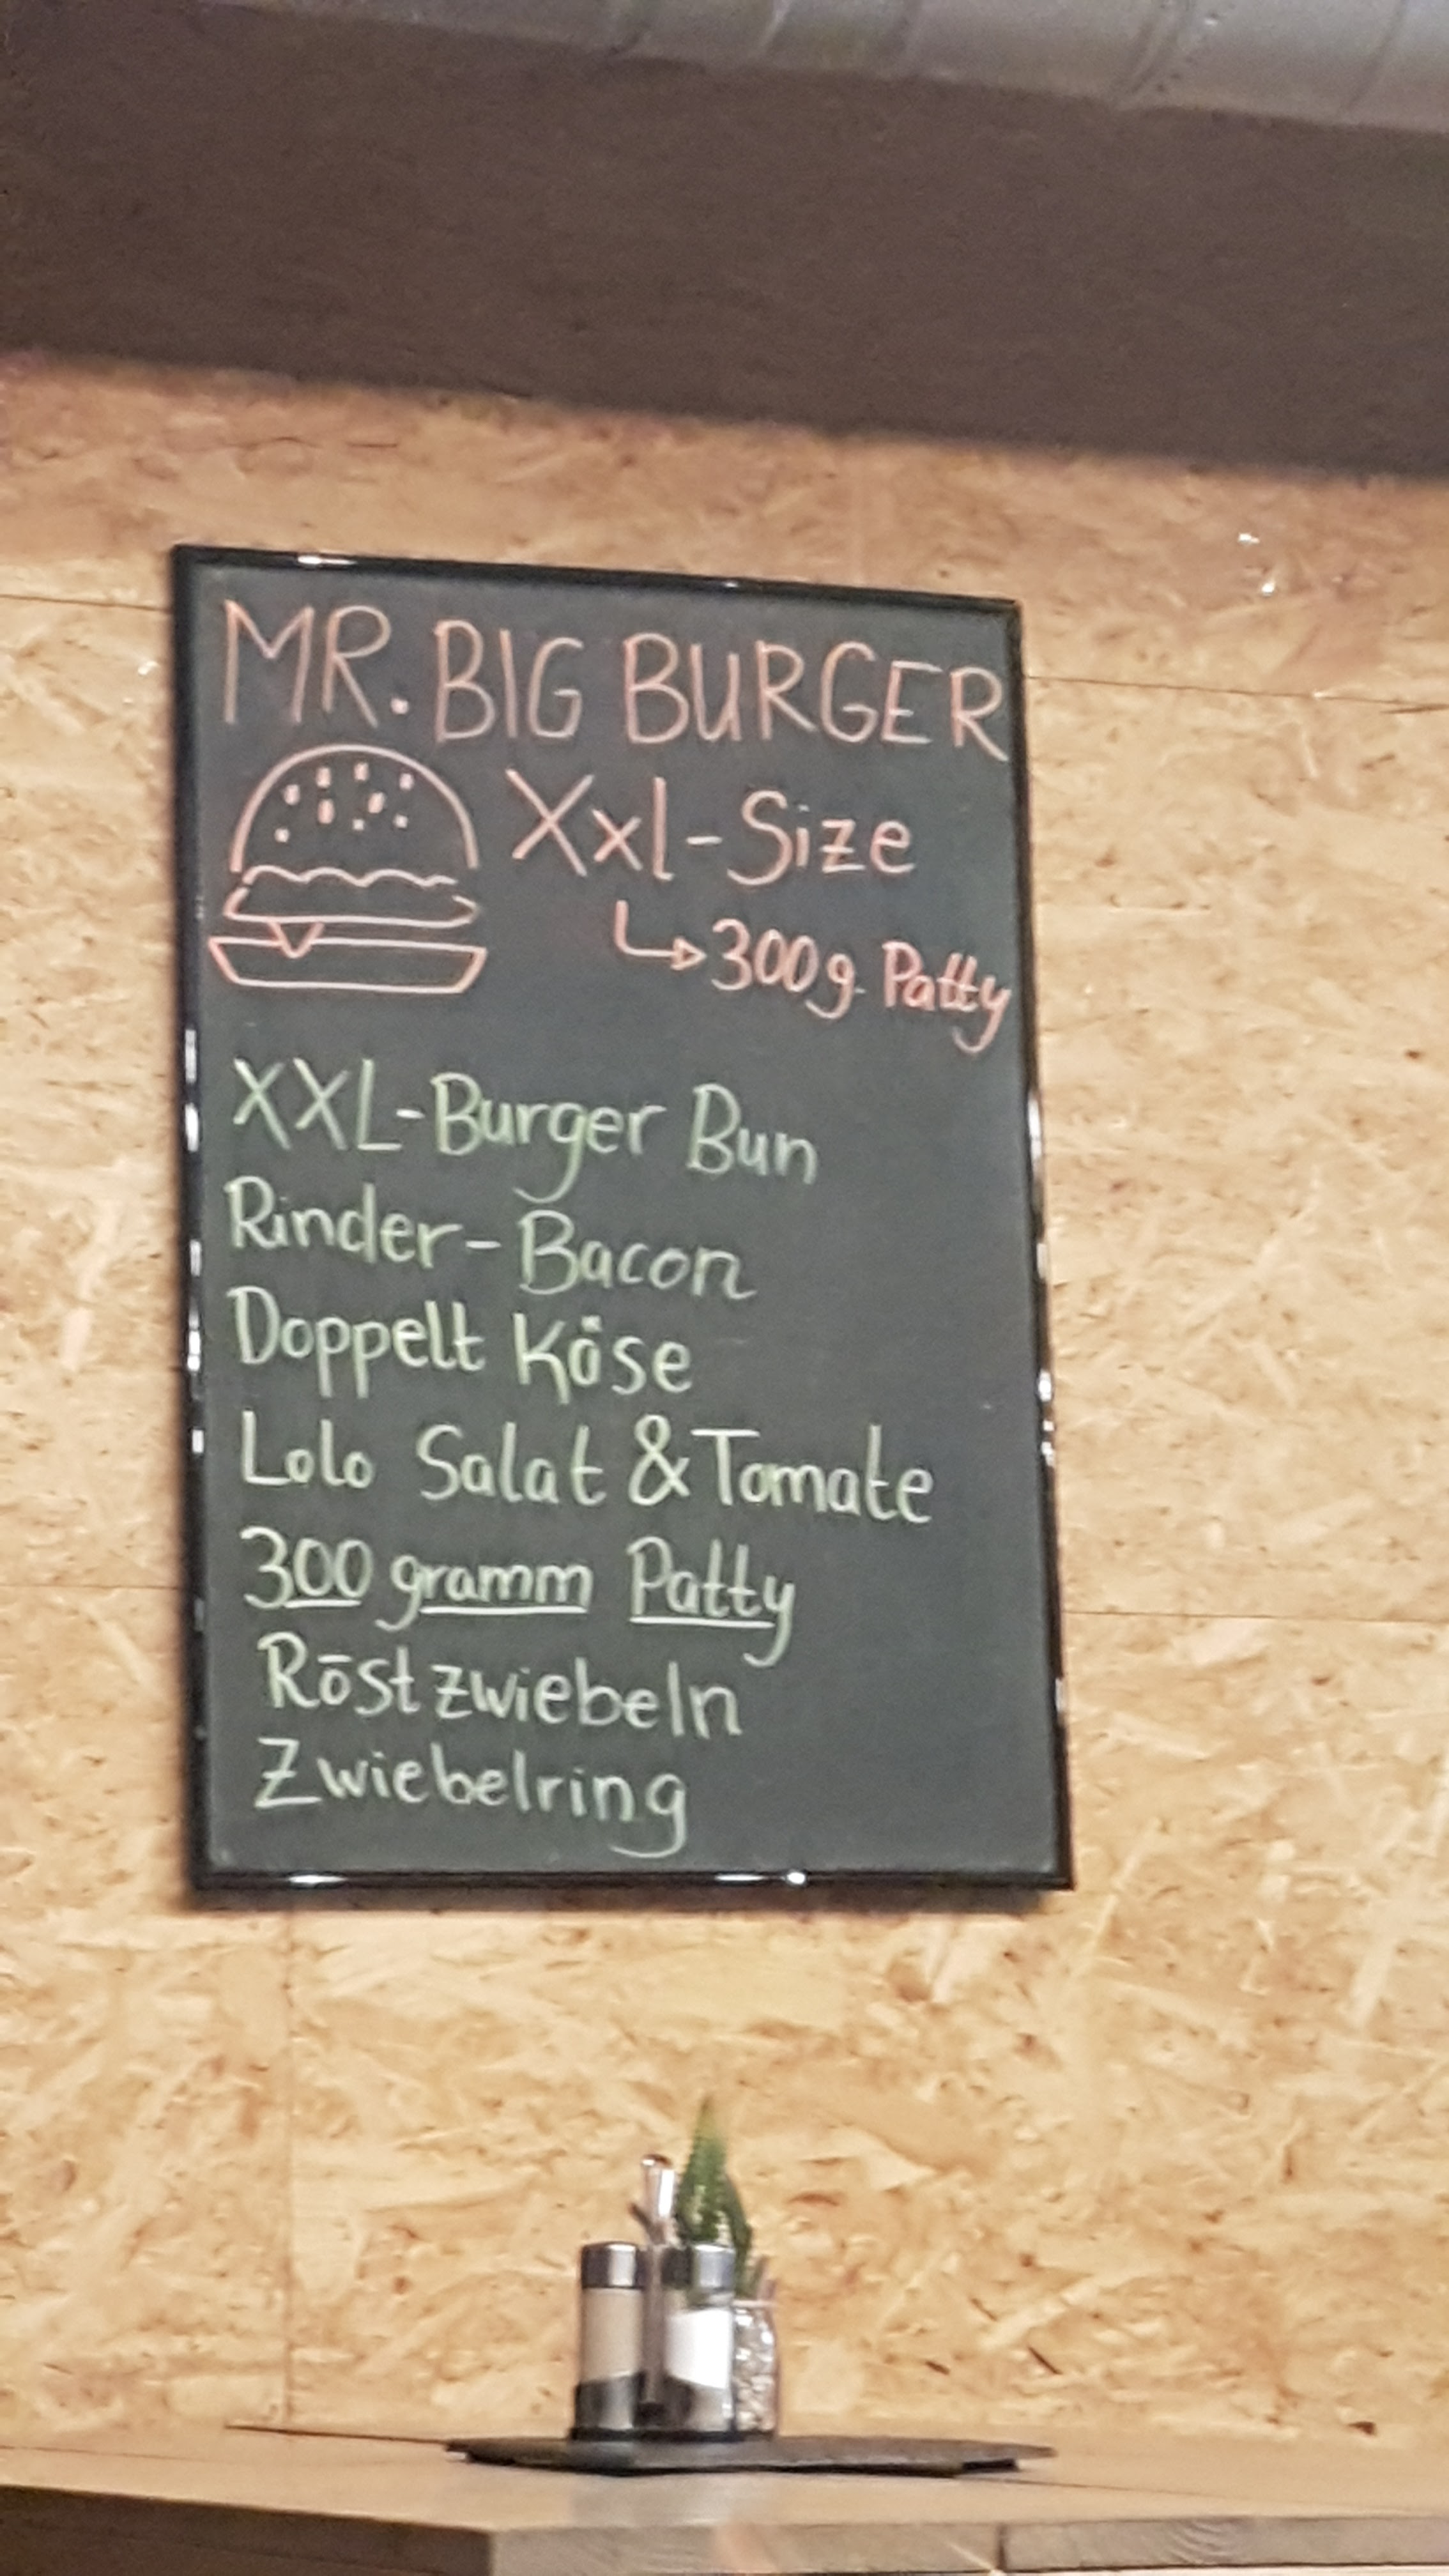 MR. BIG BURGER
Xxl-Size
300g Patty
XXL-Burger Bun
Rinder-Bacon
Doppelt Käse
Lolo Salat & Tomate
300 gramm Patty
Röstzwiebeln
Zwiebelring